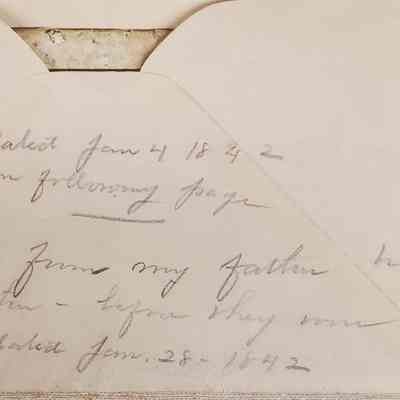 dated Jan 4 1842
on following page
from my father
- before they were
dated Jan. 28 - 1842